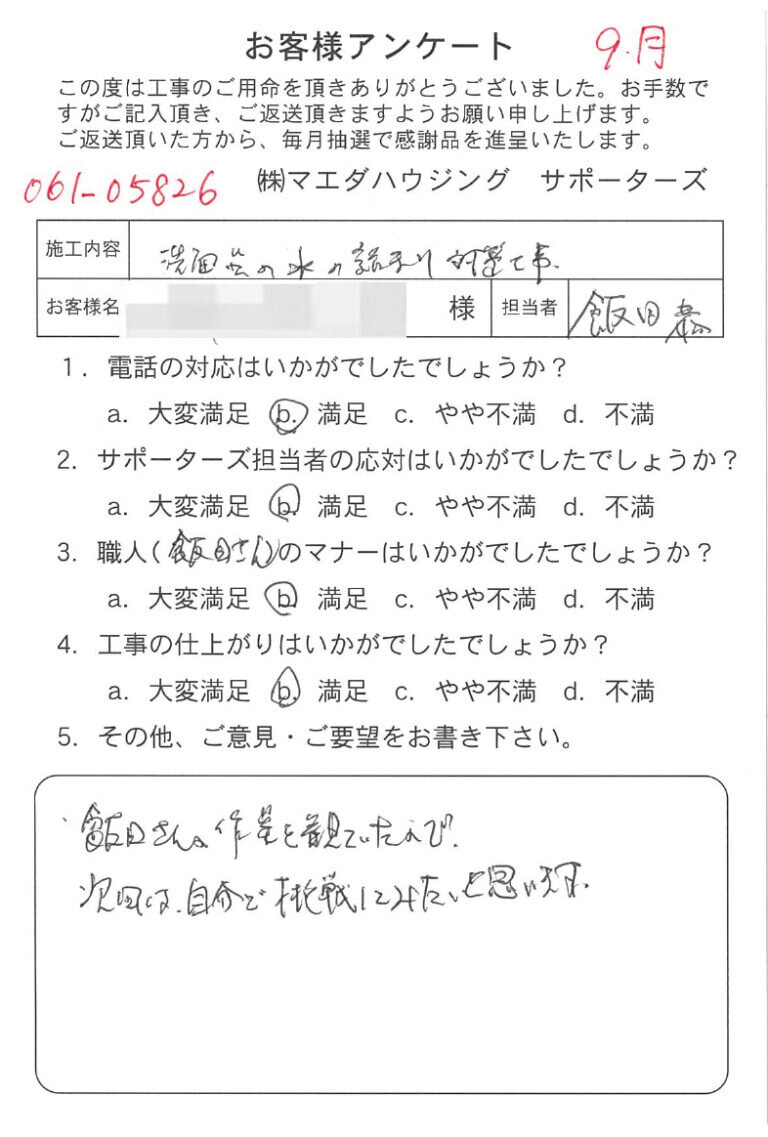 お客様アンケート 9.月
この度は工事のご用命を頂きありがとうございました。お手数で
すがご記入頂き、ご返送頂きますようお願い申し上げます。
ご返送頂いた方から、毎月抽選で感謝品を進呈いたします。
061-05826 ㈱マエダハウジング サポーターズ
施工内容 洗面台の水の詰まり対策工事.
お客様名 様 担当者 飯田
1. 電話の対応はいかがでしたでしょうか？
a. 大変満足 b. 満足 c. やや不満 d. 不満
2. サポーターズ担当者の応対はいかがでしたでしょうか？
a. 大変満足 b. 満足 c. やや不満 d. 不満
3. 職人(飯田さん)のマナーはいかがでしたでしょうか？
a. 大変満足 b. 満足 c. やや不満 d. 不満
4. 工事の仕上がりはいかがでしたでしょうか？
a. 大変満足 b. 満足 c. やや不満 d. 不満
5. その他、ご意見・ご要望をお書き下さい。
飯田さんの作業を観ていたので.
次回は、自分で挑戦してみたいと思います.